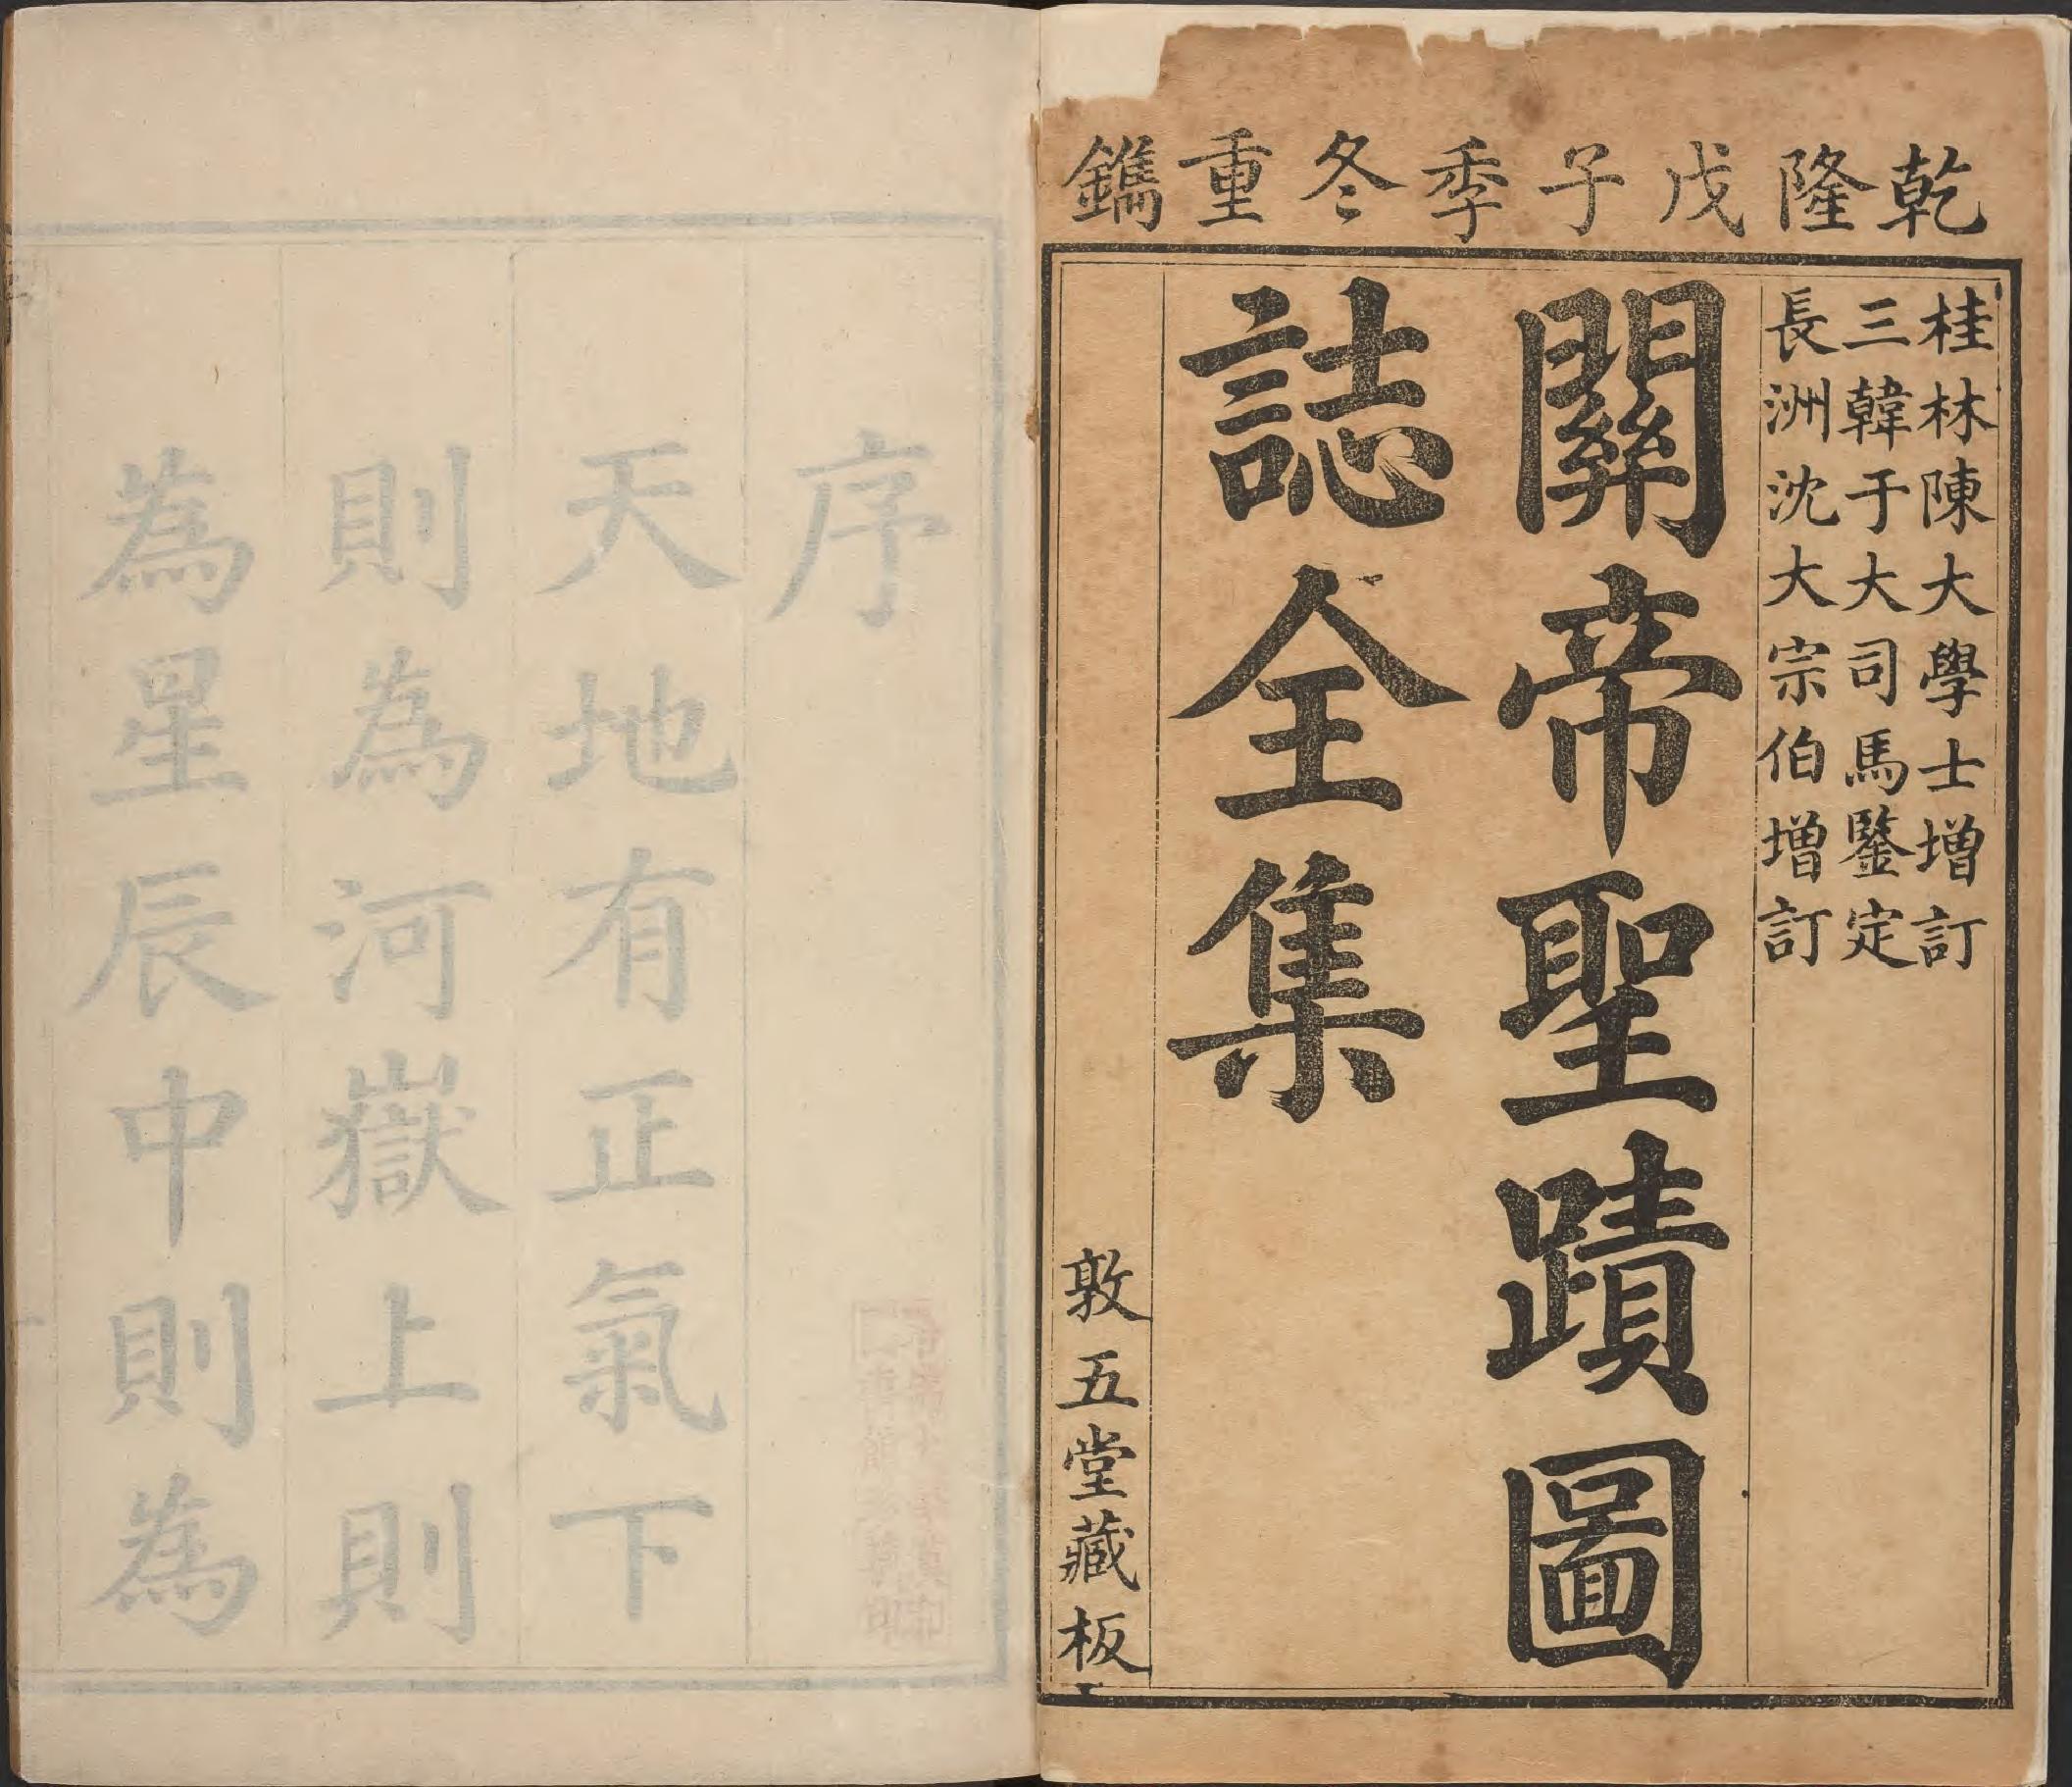 乾隆戊子季冬重鐫
桂林陳大學士增訂
三韓于大司馬鑒定
長洲沈大宗伯增訂
關帝聖蹟圖
誌全集
敦五堂藏板
序
天地有正氣下
則為河嶽上則
為星辰中則為